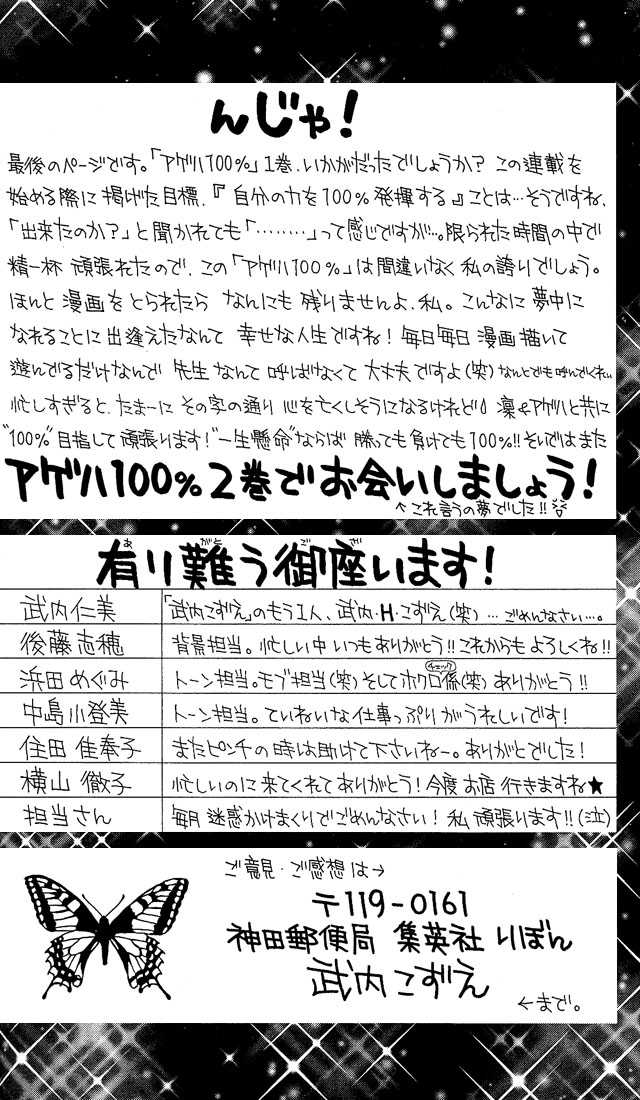 んじゃ!
最後のページです。「アゲハ100%」1巻、いかがだったでしょうか? この連載を
始める際に掲げた目標、『自分の力を100%発揮する』ことは…そうですね、
「出来たのか?」と聞かれても「………」って感じですが…。限られた時間の中で
精一杯 頑張れたので、この「アゲハ100%」は間違いなく私の誇りでしょう。
ほんと 漫画を とられたら なんにも 残りませんよ、私。こんなに 夢中に
なれることに 出逢えたなんて 幸せな人生ですね! 毎日毎日 漫画 描いて
遊んでるだけなんで 先生 なんて 呼ばなくて 大丈夫ですよ(笑) なんとでも呼んでくれい
忙しすぎると、たまーに その字の通り 心を亡くしそうになるけれど 凜やアゲハと共に
"100%"目指して 頑張ります! "一生懸命"ならば 勝っても負けても100%!! それではまた
アゲハ100% 2巻でお会いしましょう!
↑これ言うの夢でした!!
あ がと ご ざ
有り難う御座います!
武内仁美 「武内こずえ」のもう1人、武内・H・こずえ(笑) …ごめんなさい…。
後藤志穂 背景担当。忙しい中 いつもありがとう!! これからも よろしくね!!
チェック
浜田めぐみ トーン担当。モブ担当(笑) そして ホクロ係(笑) ありがとう!!
中島小登美 トーン担当。ていねいな仕事っぷりがうれしいです!
住田 佳奉子 またピンチの時は助けて下さいねー。ありがとでした!
横山 徹子 忙しいのに 来てくれて ありがとう! 今度 お店 行きますね★
担当さん 毎月 迷惑かけまくりでごめんなさい! 私 頑張ります!!(泣)
ご意見・ご感想は→
〒119-0161
神田郵便局 集英社 りぼん
武内こずえ
←まで。